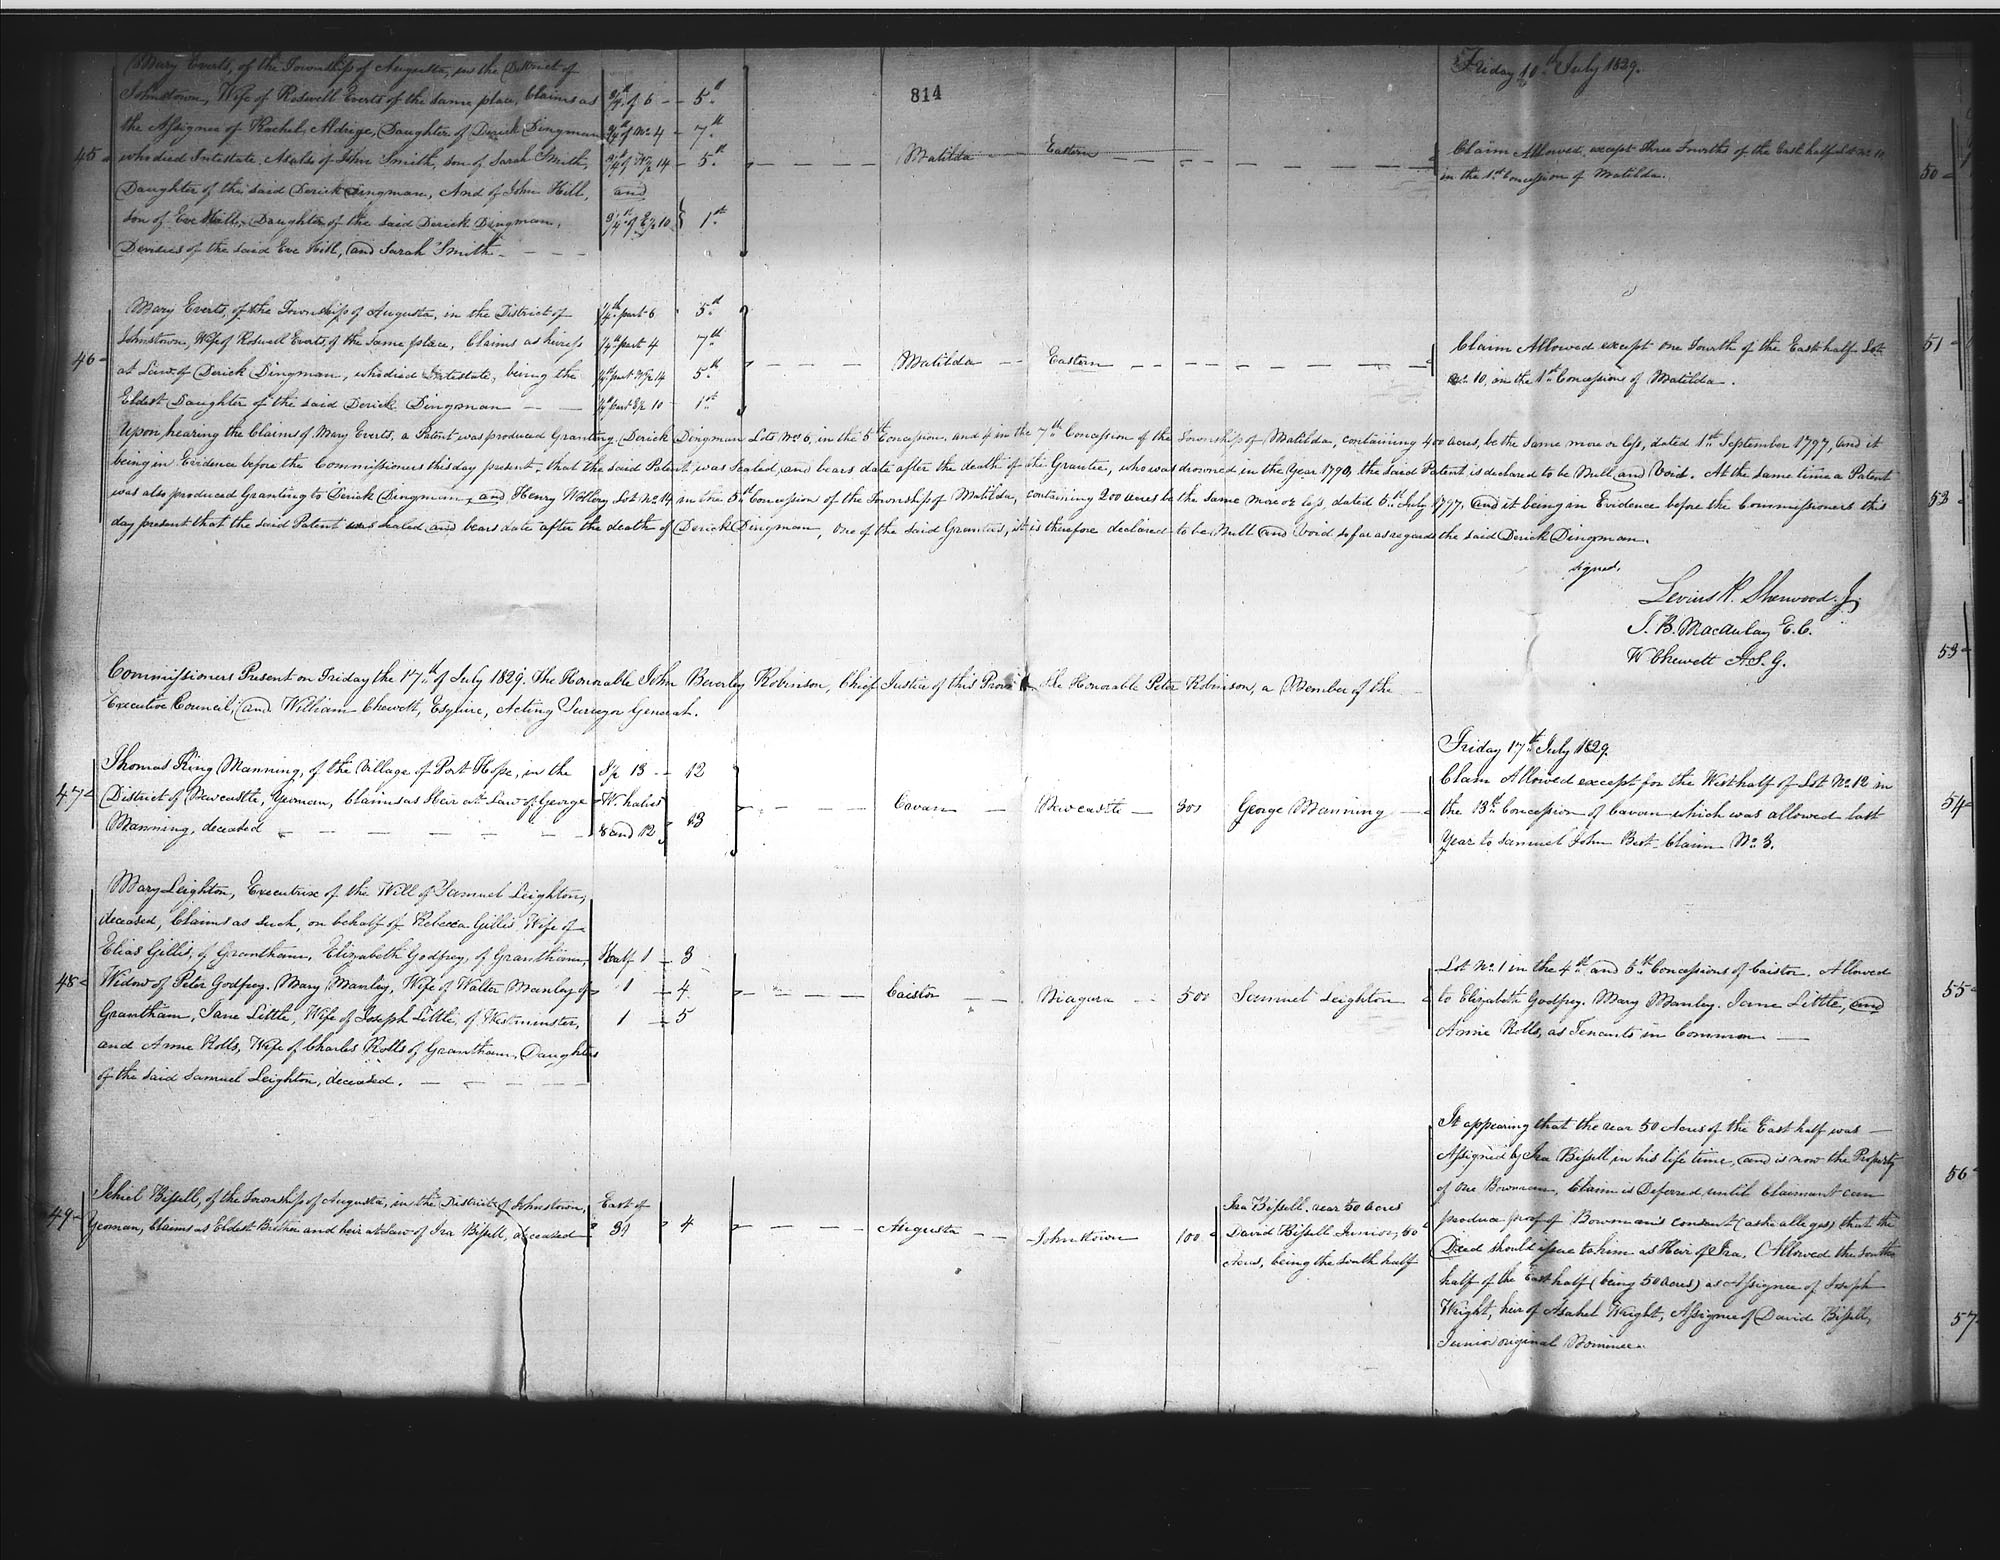 814
Friday 10th July 1829.
45
Mary Everts, of the Township of Augusta, in the District of
Johnstown, Wife of Roswell Everts of the same place, Claims as
the Assignee of Rachel Aldrige, Daughter of Derick Dingman
who died Intestate. Also of John Smith, son of Sarah Smith,
Daughter of the said Derick Dingman, And of John Hill,
son of Eve Hill, Daughter of the said Derick Dingman,
Devisees of the said Eve Hill, and Sarah Smith
3/4th of 6 5th
3/4th of No 4 7th
3/4th of W1/2 14 5th
and
3/4th of E1/2 10 1st
Matilda Eastern
Claim Allowed, except Three Fourths of the East half Lot No 10
in the 1st Concession of Matilda.
46
Mary Everts, of the Township of Augusta, in the District of
Johnstown, Wife of Roswell Everts, of the same place, Claims as heiress
at Law of Derick Dingman, who died Intestate, being the
Eldest Daughter of the said Derick Dingman
1/4th part 6 5th
1/4th part 4 7th
1/4th part W1/2 14 5th
1/4th part E1/2 10 1st
Matilda Eastern
Claim Allowed except one Fourth of the East half Lot
No. 10, in the 1st Concession of Matilda.
Upon hearing the Claims of Mary Everts, a Patent was produced Granting Derick Dingman Lots No 6, in the 5th Concession, and 4 in the 7th Concession of the Township of Matilda, containing 400 acres, be the same more or less, dated 1st September 1797, and it
being in Evidence before the Commissioners this day present, that the said Patent was Sealed, and bears date after the death of the Grantee, who was drowned in the Year 1790, the said Patent is declared to be Null and Void. At the same time a Patent
was also produced Granting to Derick Dingman, and Henry Lot No 14 in the 5th Concession of the Township of Matilda, containing 200 acres be the same more or less, dated 6th July 1797, and it being in Evidence before the Commissioners this
day present that the said Patent was sealed, and bears date after the death of Derick Dingman, one of the said Grantees, it is therefore declared to be Null and Void so far as regards the said Derick Dingman.
signed,
Levius P. Sherwood. J.
J. B. Macaulay E.C.
W Chewett A.S.G.
Commissioners Present on Friday the 17th of July 1829. The Honorable John Beverley Robinson, Chief Justice of this Province the Honorable Peter Robinson, a Member of the
Executive Council, and William Chewett, Esquire, Acting Surveyor General.
Friday 17th July 1829.
47
Thomas King Manning, of the Village of Port Hope, in the
District of Newcastle, Yeoman, Claims as Heir at Law of George
Manning, deceased
S1/2 13 12
W. halves
8 and 12 13
Cavan Newcastle 300 George Manning
Claim Allowed except for the West half of Lot No 12 in
the 13th Concession of Cavan which was allowed last
Year to Samuel John Best Claim No 3.
48
Mary Leighton, Executrix of the Will of Samuel Leighton,
deceased, Claims as such, on behalf of Rebecca Gillis Wife of
Elias Gillis, of Grantham, Elizabeth Godfrey, of Grantham,
Widow of Peter Godfrey. Mary Manley, Wife of Walter Manley of
Grantham, Jane Little, Wife of Joseph Little, of Westminster,
and Annie Rolls, Wife of Charles Rolls of Grantham, Daughters
of the said Samuel Leighton, deceased.
Half 1 3
1 4
1 5
Caistor Niagara 500 Samuel Leighton
Lot No. 1 in the 4th and 5th Concessions of Caistor. Allowed
to Elizabeth Godfrey. Mary Manley. Jane Little, and
Annie Rolls, as Tenants in Common
49
Jehiel Bissell, of the Township of Augusta, in the District of Johnstown,
Yeoman, Claims as Eldest Brother and heir at Law of Ira Bissell, deceased
East of
31 4
Augusta Johnstown 100
Ira Bissell, rear 50 acres
David Bissell Junior, 50
Acres, being the South half
It appearing that the rear 50 Acres of the East half was
Assigned by Ira Bissell in his life time, and is now the Property
of one Bowman, Claim is Deferred, until Claimant can
produce proof of Bowman's consent (as he alleges) that the
Deed should issue to him as Heir of Ira. Allowed the South
half of the East half (being 50 Acres) as Assignee of Joseph
Wright, heir of Asahel Wright, Assignee of David Bissell,
Junior original Nominee.
50
51
53
53
54
55
56
57